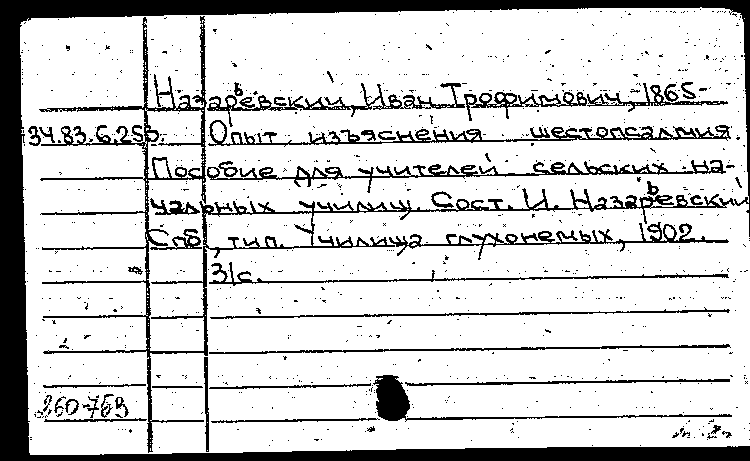 Назаревский, Иван Трофимович, 1865-
34.83.6.255. Опыт изъяснения шестопсалмия.
Пособие для учителей сельских на-
чальных училищ. Сост. И. Назаревский
Спб, тип. Училища глухонемых, 1902.
31с.
260-763